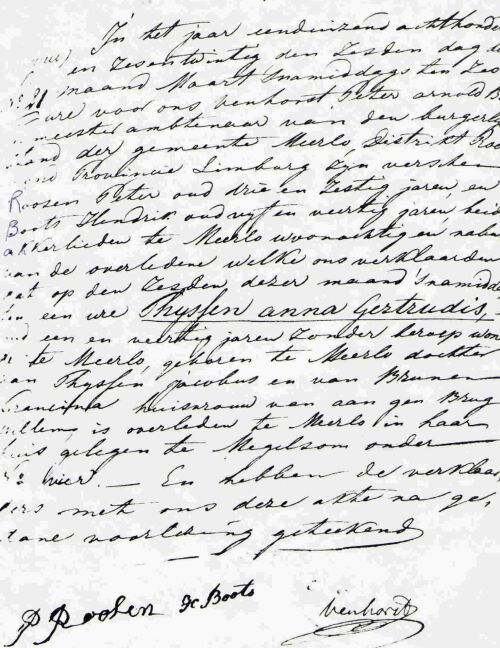 In het jaar eendeizend achthonder
en Zesentwintig den Zesden dag
maand Maart Snamiddags ten Zes
N° 21
Ure voor ons venhorst Peter arnold B
meester ambtenaar van den burgerl
tand der gemeente Meerlo, Distrikt Roe
Provincie Limburg Zyn verschen
Roosen Peter oud drie en Zestig jaren, en
Boots Hendrik oud vyf en veertig jaren, beid
akkerlieden te Meerlo woonachtig en nabu
van de overledene welke ons verklaarden
dat op den Zesden dezer maand Snamidda
ten een ure Thyssen anna Gertrudis,
oud een en veertig jaren Zonder beroep won
de te Meerlo, geboren te Meerlo dochter
van Thyssen jacobus en van Brunen
Francina huisvrouw van aan gen Brug
Willem, is overleden te Meerlo in haar
huis gelegen te Megelsom onder
N° vier. — En hebben de verklaar
ders met ons deze akte na ge,
dane voorlezing geteekend
P Roosen H Boots Venhorst